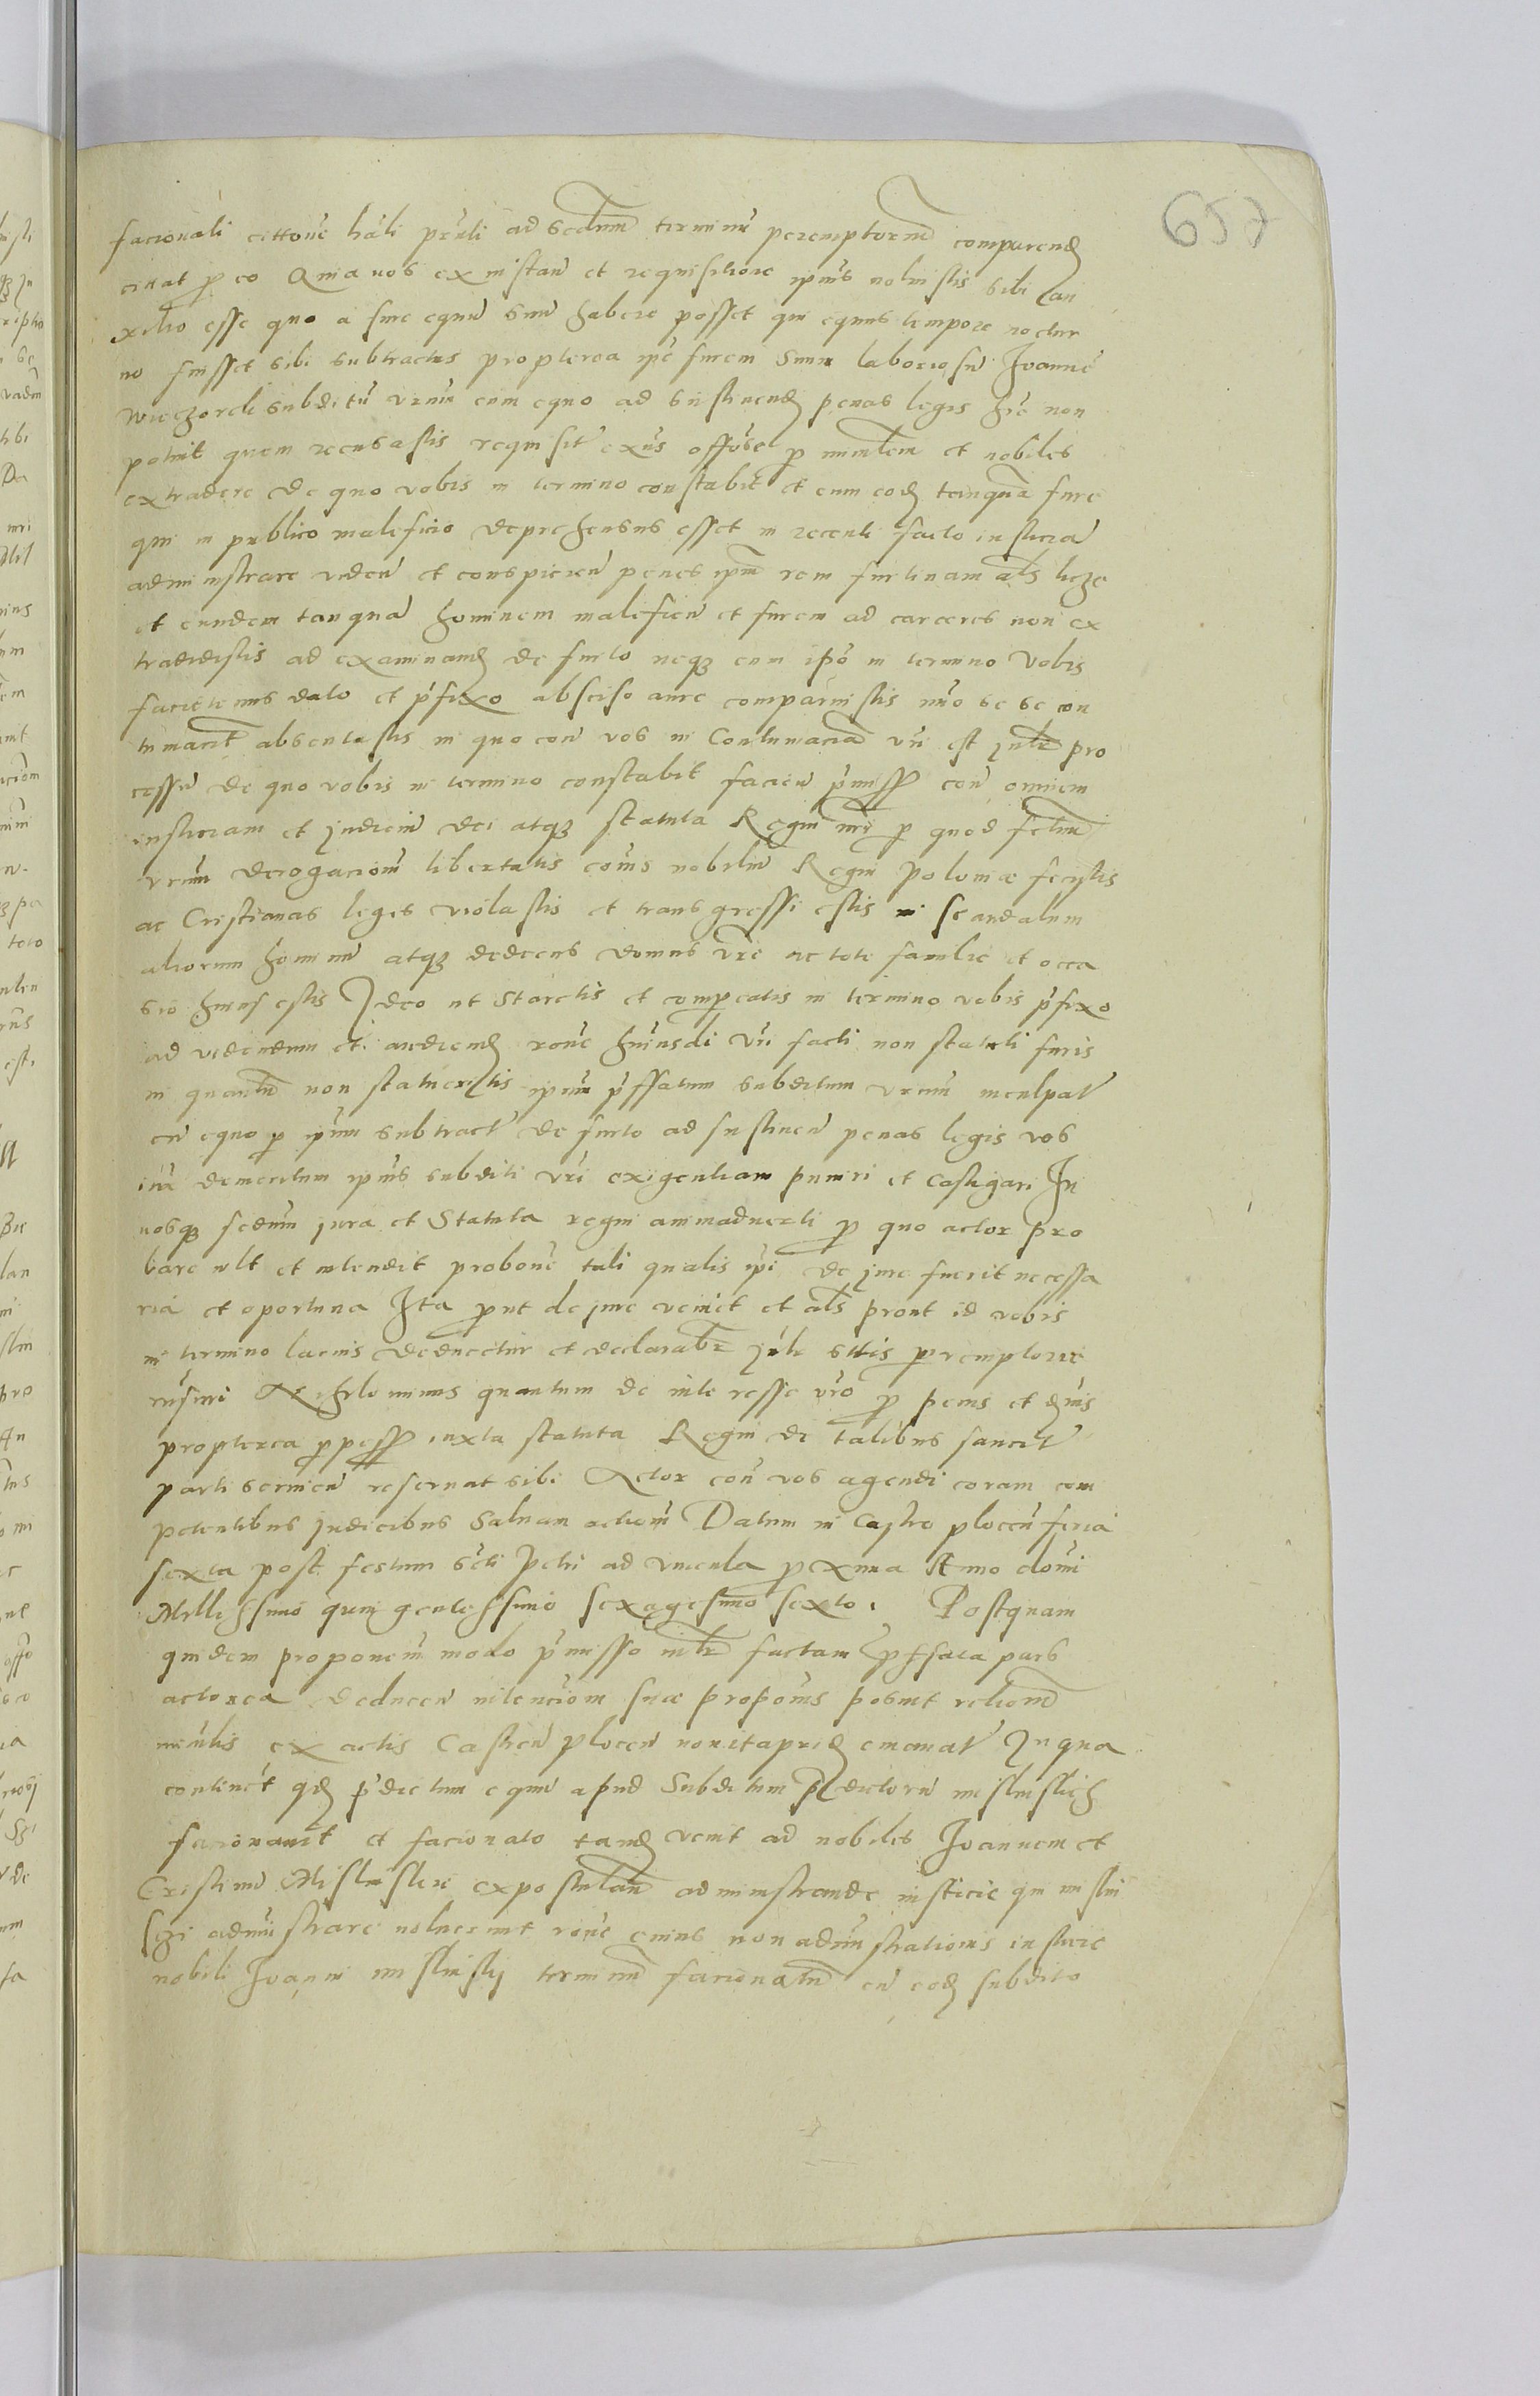 657
facionali cittone hali pruli ad scdum terminu peremptorium comparend
citat p eo Quia vos ex instan et requisitione ipius noluistis sibi au
xilio esse quo a fure equu suu habere posset qui equus tempore noctur
no fuisset sibi subtractus propterea ipe furem suum laboriosu Joanne
Wieczorek subditu vrum cum equo ad sustinend penas legis hre non
potuit quem recusastis requisit p ministlem et nobiles
extradere de quo vobis in termino constabit et cum eod tanqua fure
qui in publico maleficio deprehensus esset in recenti facto insticia
administrare viden et conspicien penes ipm rem furtivam als licze
et eundem tanqua hominem maleficu et furem ad carceres non ex
tradidistis ad examinand de furto neqz cum ipo in termino vobis
dato et pfixo absciso aure comparuistis imo se se con
tumacit absentastis in quo con vos in contumacia vri est pro
cessu de quo vobis in termino constabit facien pmissor con omnem
insticiam et judiciu dei atqz statuta Regni p quod fctum
vrum derogacionem libertatis cois nobiliu Regni Poloniæ fecistis
ac Cristianas leges violastis et transgressi estis in scandalum
aliorum hominu atqz dedecus domus vre ac tote familie et occa
sio huius estis Ideo ut staretis et compeatis in termino vobis pfixo
ad videndum et audiend rone huiusdi vri facti non statuti furis
in quantu non statueritis ipum pffatum subditum vrum inculpat
cu equo p ipum subtract de furto ad sustinen penas legis vos
iux demeritum ipius subditi vri exigentiam puniri et castigari In
vosqz scdum jura et Statuta regni animadverti p quo actor pro
bare vlt et intendit probone tali qualis ipi de jure fuerit necessa
ria et oportuna Ita put de jure veniet et als prout id vobis
in termino lacius deducetur et declarabr sitis peremptorie
rnsuri Nihilominus quantum de interesse vro p penis et dnis
propterea ppessis iuxta statuta Regni de talibus sancit
parti servien reservat sibi Actor con vos agendi coram com
petentibus judicibus salvam actiom Datum in Castro plocen feria
sexta post festum scti Petri ad vincula pxima Anno domi
Millessimo quingentessimo sexagesimo sexto. Postquam
quidem proponem modo pmisso factam pffata pars
actorea deducen intenciom suæ propois posuit
ex actis Castren plocen non ita prid emanat In qua
continet qd pdictum equu apud Subditum pdictoru misluskich
facionavit et facionato tand venit ad nobiles Joannem et
Cristinu Misluskie expostulan administrande insticie qui mislu
sczi administrare noluerunt rone cuius non administrationis insticie
nobili Joanni misluskj terminu facionatu cu eod subdito